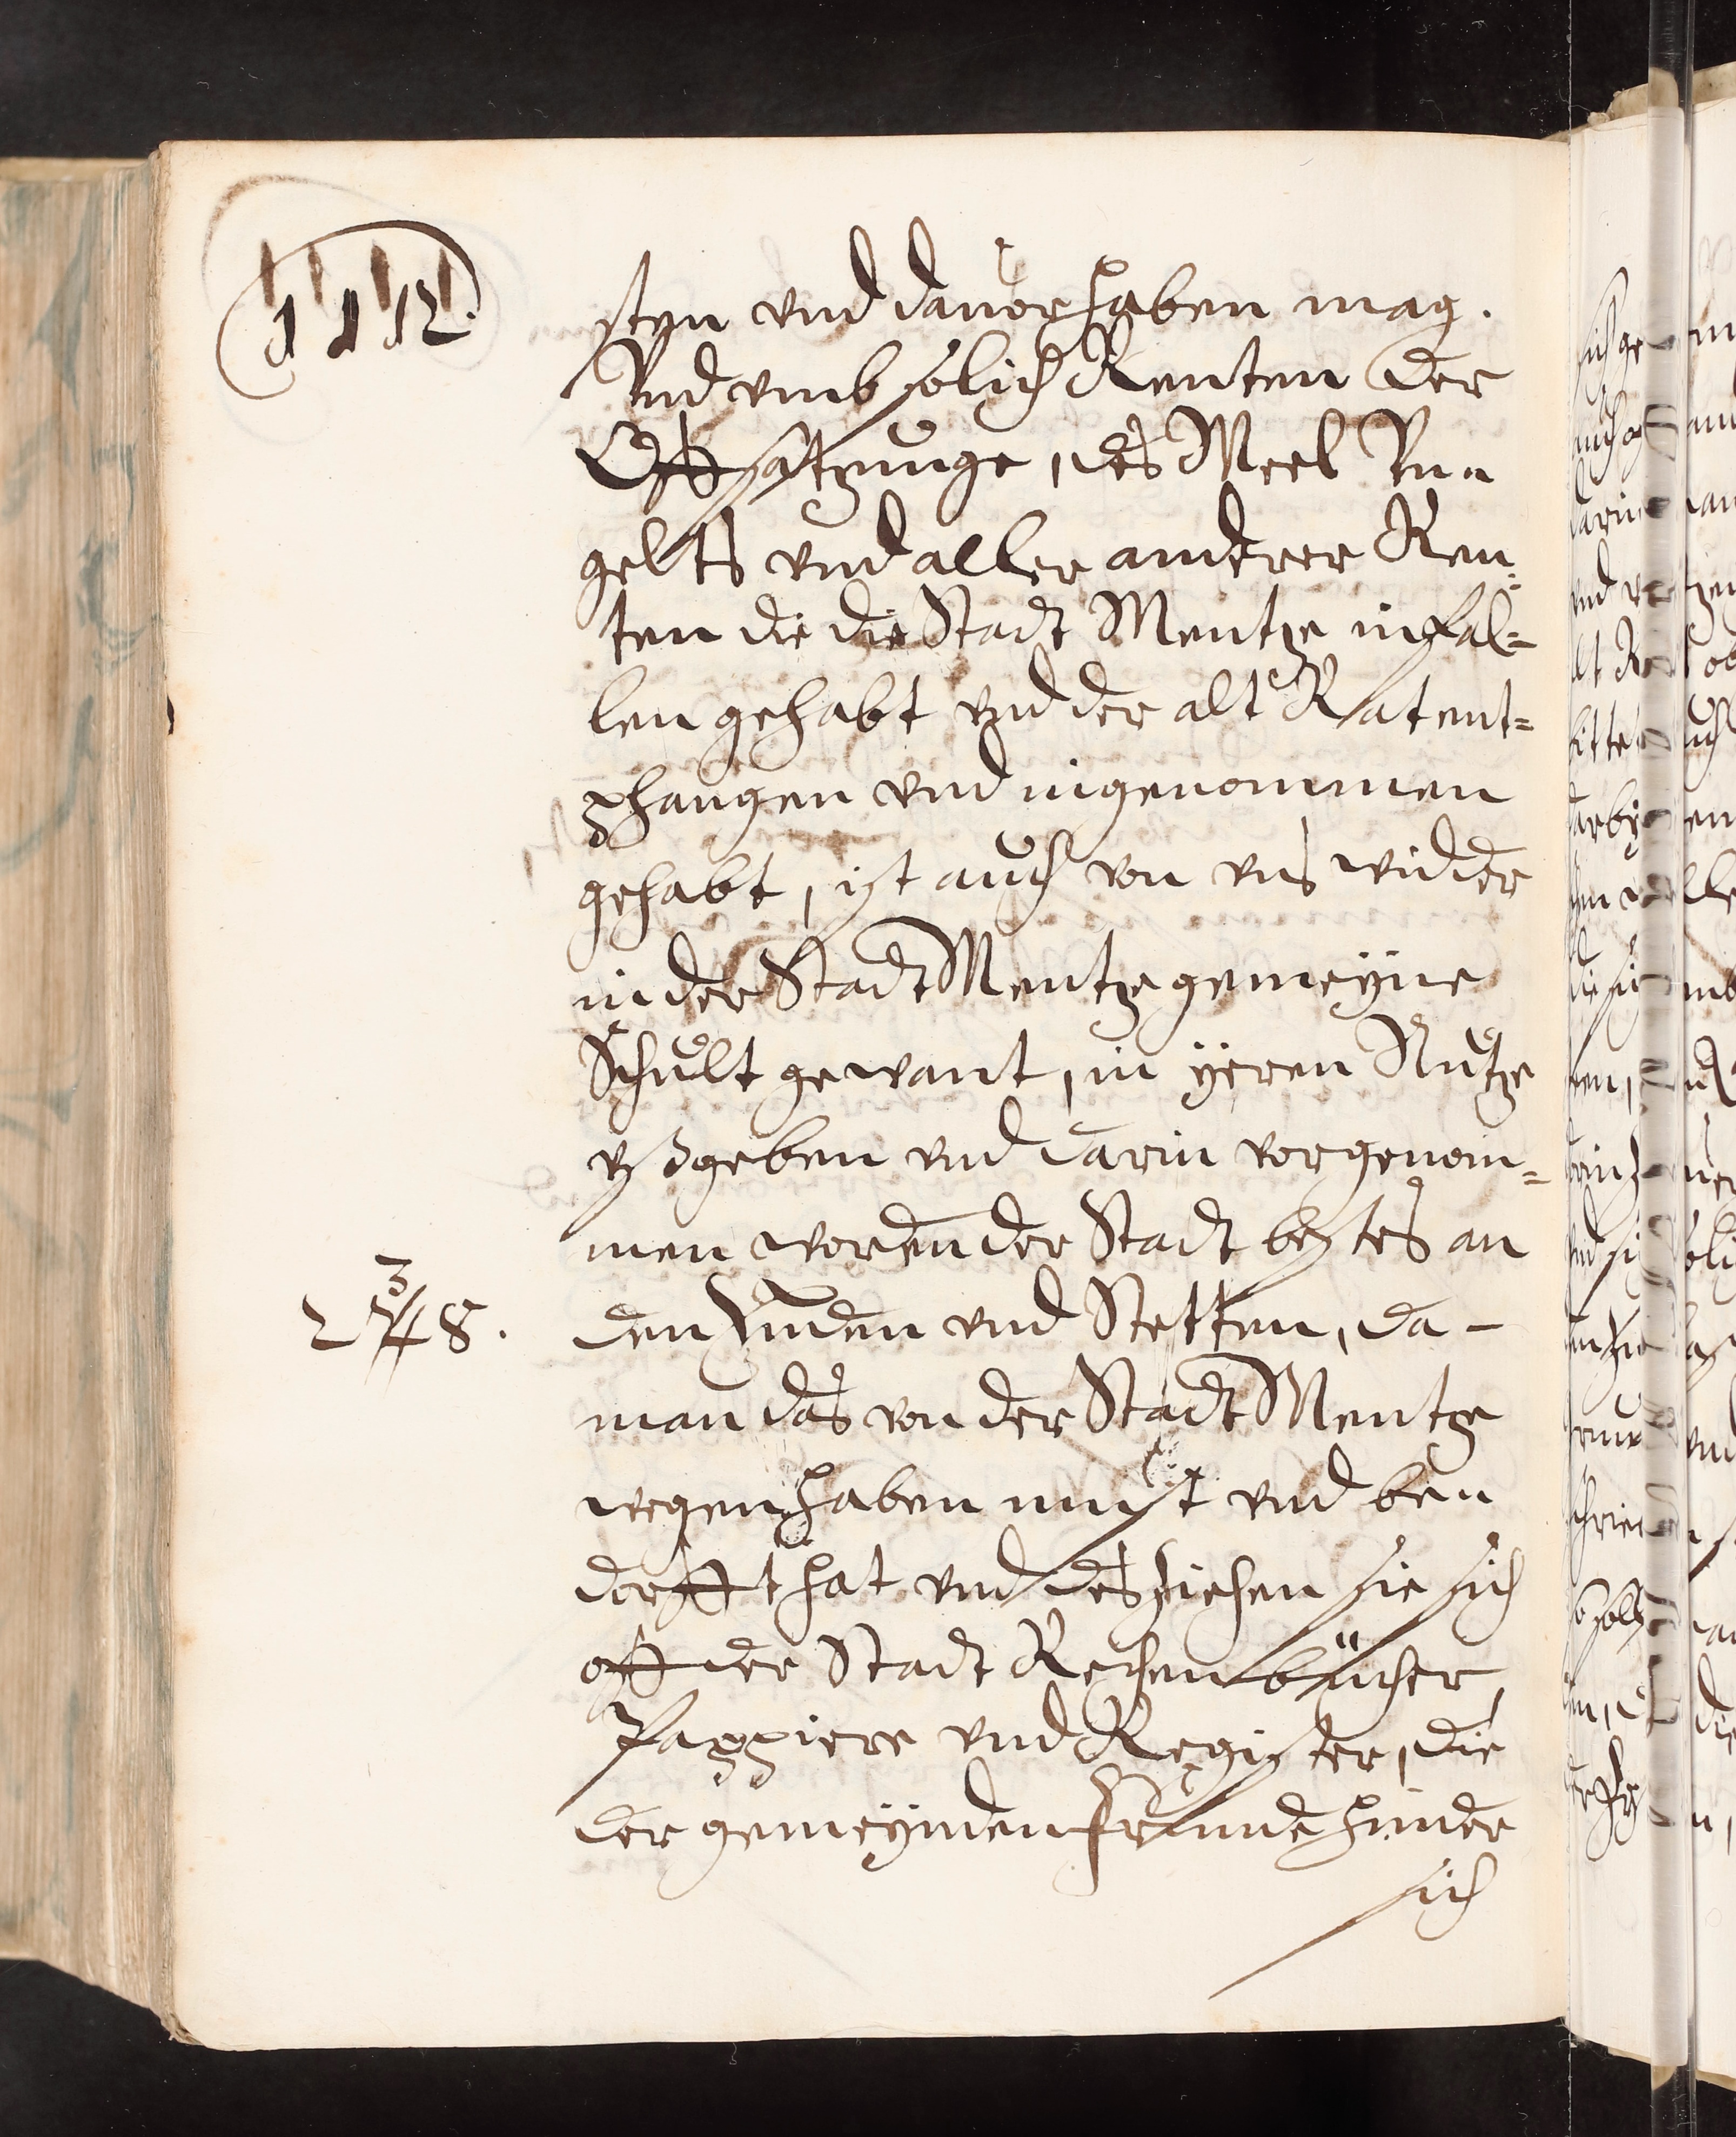 1112.
styn vnd dauor haben mag.
Vnd vmb solich Renten der
Offsatzunge, des Meel Vn⸗
gelts vnd aller anderer Ren⸗
ten die die Stadt Mentze in fal⸗
len gehabt vnd der alt Rat ent⸗
phangen vnd ingenommen
gehabt, ist auch von vns widder
in der Stadt Mentze gemeyne
Schult gewant, in yren Nutze
vßgeben vnd darin vorgenom⸗
men worden der Stadt bestes an
den Enden vnd Stetten, da⸗
man das von der Stadt Mentze
wegen haben must vnd ben
dorfft hat vnd des ziehen sie sich
off der Stadt Rechenbücher,
Pappiere vnd Register, die
der gemeynden frunde hinder
sich